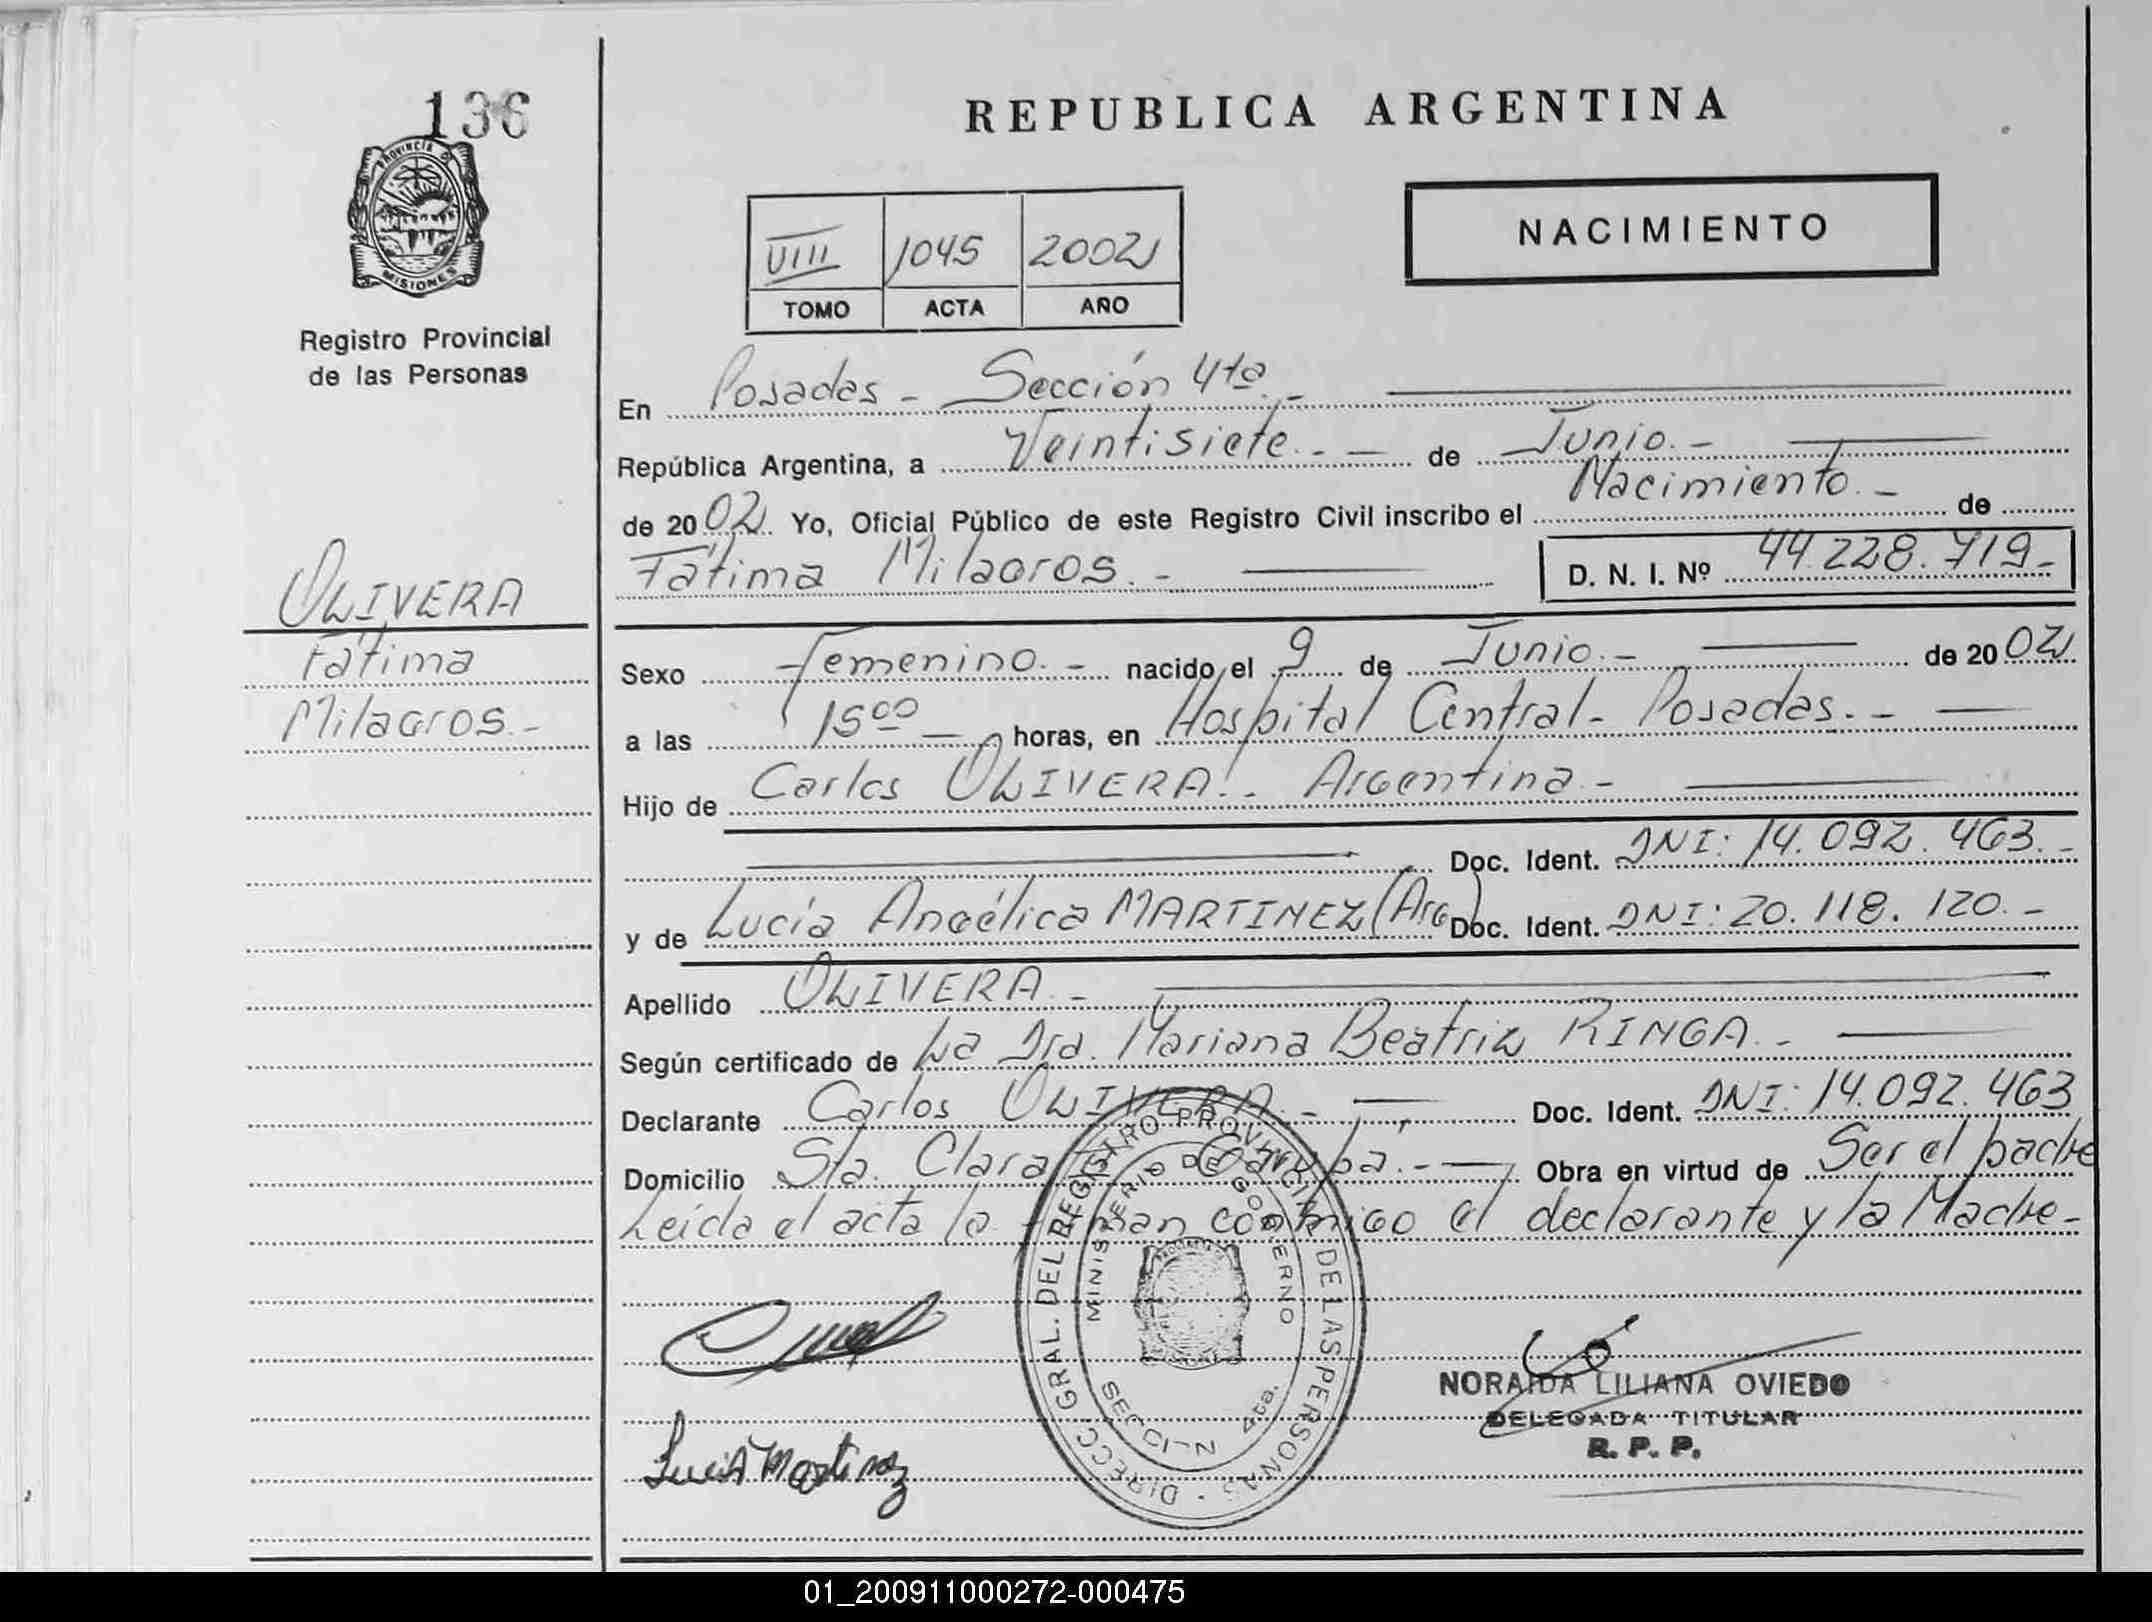 136
PROVINCIA D
MISIONES
Registro Provincial
de las Personas
OLIVERA
Fátima
Milagros.-
REPUBLICA ARGENTINA
NACIMIENTO
VIII 1045 2002
TOMO ACTA AÑO
En Posadas - Sección 4ta.-
República Argentina, a Veintisiete.- de Junio.-
de 2002. Yo, Oficial Público de este Registro Civil inscribo el Nacimiento.- de
Fátima Milagros.- D. N. I. Nº 44.228.719-
Sexo Femenino.- nacido el 9 de Junio.- de 2002
a las 15 00 horas, en Hospital Central - Posadas.-
Hijo de Carlos OLIVERA.- Argentina.-
Doc. Ident. DNI: 14.092.463.-
y de Lucía Angélica MARTINEZ (Arg) Doc. Ident. DNI: 20.118.120.-
Apellido OLIVERA.-
Según certificado de La Dra. Mariana Beatriz RINGA.-
Declarante Carlos OLIVERA.- Doc. Ident. DNI: 14.092.463
Domicilio Sta. Clara - Garupá.- Obra en virtud de Ser el padre
Leída el acta la firman conmigo el declarante y la Madre-
DIRECC. GRAL. DEL REGISTRO PROVINCIAL DE LAS PERSONAS
MINISTERIO DE GOBIERNO
SECCION 4ta.
Lucia Martinez
NORAIDA LILIANA OVIEDO
DELEGADA TITULAR
R. P. P.
01_200911000272-000475